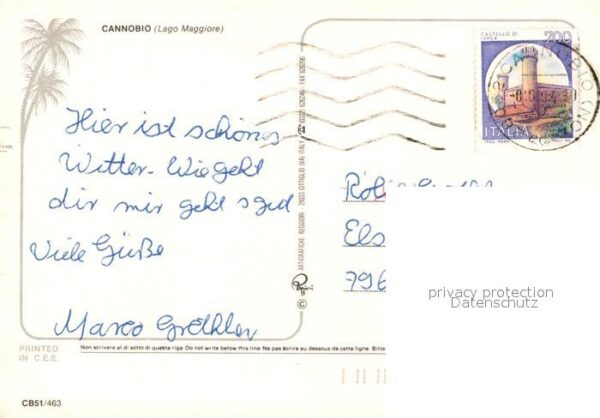 CANNOBIO (Lago Maggiore)
Hier ist schönes
Witter. Wie geht
dir mir geht s gut
Viele Güße
Marco Gröthler
CASTELLO DI
IVREA
700
ITALIA
ARTIGRAFICHE REGGIORI - 21033 CITTIGLIO (VA) ITALY
Els
796
privacy protection
Datenschutz
PRINTED
IN C.E.E.
Non scrivere al di sotto di questa riga Do not write below this line - Ne pas écrire au dessous de cette ligne
CB51/463